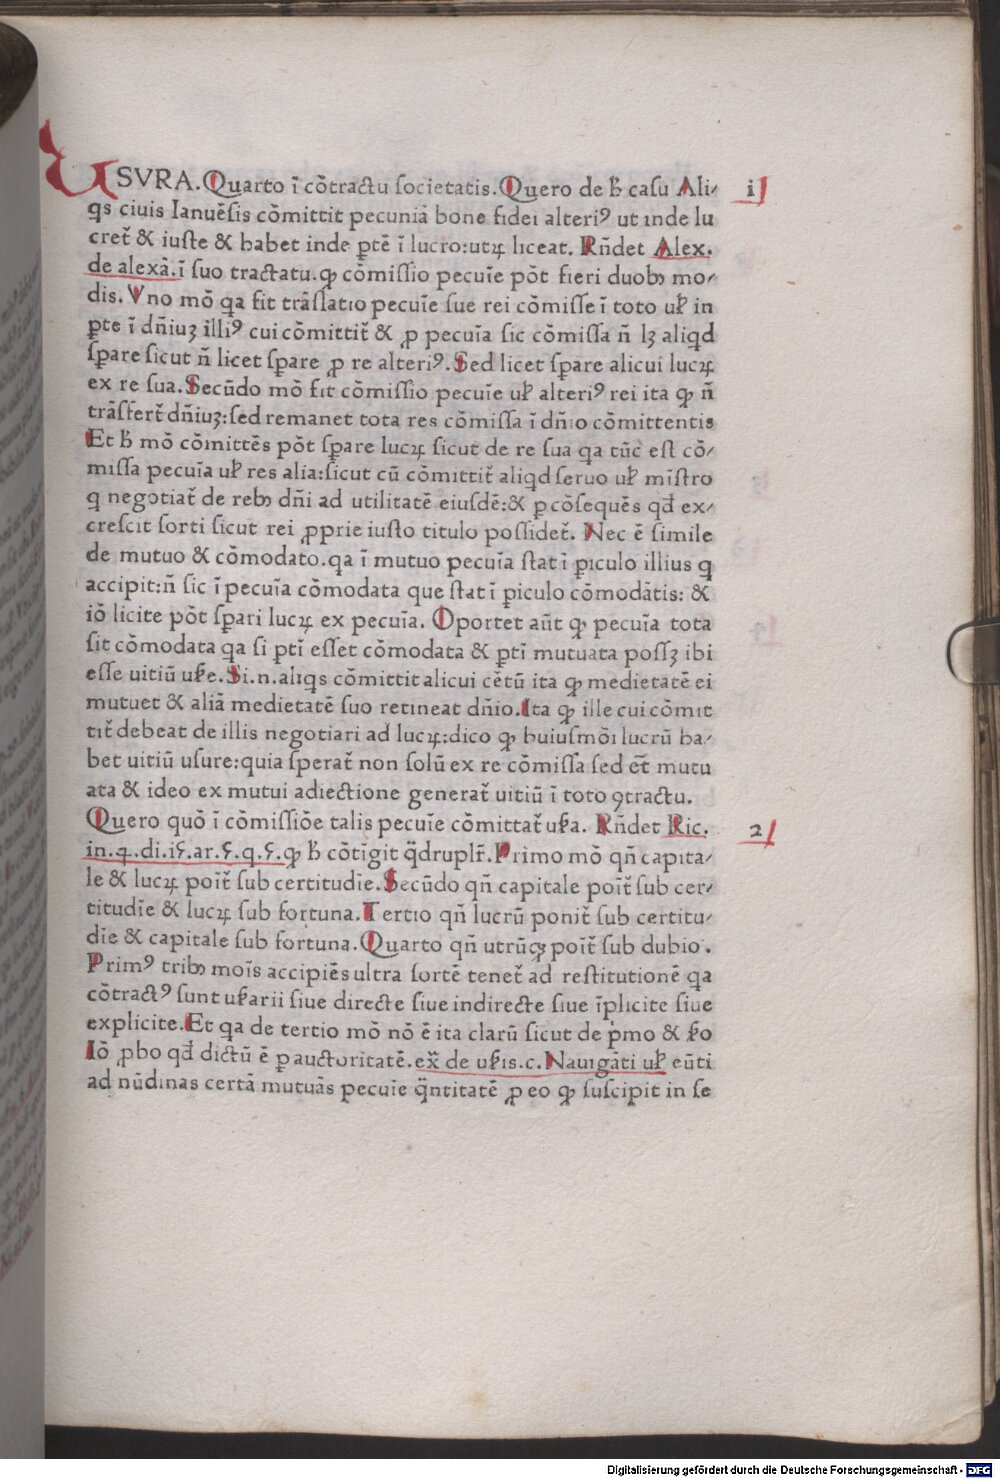 USVRA. Quarto ī cōtractu societatis. Quero de ħ casu Ali/ i
q̄s ciuis Ianuēsis cōmittit pecuniā bone fidei alteriꝰ ut inde lu
creť & iuste & habet inde ꝑtē ī lucro: utꝝ liceat. Rñdet Alex.
de alexā. ī suo tractatu. ꝙ cōmissio pecuīe pōt fieri duobꝫ mo/
dis. Vno mō qa fit trāslatio pecuīe sue rei cōmisse ī toto uł in
ꝑte ī dñiuꝫ illiꝰ cui cōmittiť & ꝓ pecuīa sic cōmissa ñ lꝫ aliqd
sꝑare sicut ñ licet sꝑare ꝓ re alteriꝰ. Sed licet sꝑare alicui lucꝝ
ex re sua. Secūdo mō fit cōmissio pecuīe uł alteriꝰ rei ita ꝙ ñ
trāsferť dñiuꝫ: sed remanet tota res cōmissa ī dñio cōmittentis
Et ħ mō cōmittēs pōt sꝑare lucꝝ sicut de re sua qa tūc est cō/
missa pecuīa uł res alia: sicut cū cōmittiť aliqd seruo uł mīstro
q negotiať de rebꝫ dñi ad utilitatē eiusdē: & ꝑ cōsequēs qď ex/
crescit sorti sicut rei ꝓprie iusto titulo possideť. Nec ē simile
de mutuo & cōmodato. qa ī mutuo pecuīa stat ī ꝑiculo illius q
accipit: ñ sic ī pecuīa cōmodata que stat ī ꝑiculo cōmodātis: &
iō licite pōt sꝑari lucꝝ ex pecuīa. Oportet aūt ꝙ pecuīa tota
sit cōmodata qa si ꝑtī esset cōmodata & ꝑtī mutuata possꝫ ibi
esse uitiū uẜe. Si. n. aliq̄s cōmittit alicui cētū ita ꝙ medietatē ei
mutuet & aliā medietatē suo retineat dñio. Ita ꝙ ille cui cōmit
tiť debeat de illis negotiari ad lucꝝ: dico ꝙ huiusmōi lucrū ha/
bet uitiū usure: quia sperať non solū ex re cōmissa sed et̄ mutu
ata & ideo ex mutui adiectione generať uitiū ī toto ꝯtractu.
Quero quō ī cōmissiōe talis pecuīe cōmittať uẜa. Rñdet Ric. 2
in. 4. di. i5. ar. 5. q. 5. ꝙ ħ cōtīgit q̄druplr̄. Primo mō qñ capita/
le & lucꝝ poīť sub certitudīe. Secūdo qñ capitale poīť sub cer/
titudīe & lucꝝ sub fortuna. Tertio qñ lucrū poniť sub certitu/
dīe & capitale sub fortuna. Quarto qñ utrūqꝫ poīť sub dubio.
Primꝰ tribꝫ moīs accipiēs ultra sortē teneť ad restitutionē qa
cōtractꝰ sunt uẜarii siue directe siue indirecte siue īplicite siue
explicite. Et qa de tertio mō nō ē ita clarū sicut de pͥmo & ẜo
Iō ꝓbo qď dictū ē ꝑ auctoritatē. ex̄ de uẜis. c. Nauigāti uł eūti
ad nūdinas certā mutuās pecuīe q̄ntitatē ꝓ eo ꝙ suscipit in se
Digitalisierung gefördert durch die Deutsche Forschungsgemeinschaft - DFG